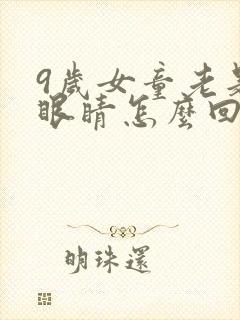 9歲女童老是
眼睛怎麼回
明珠還